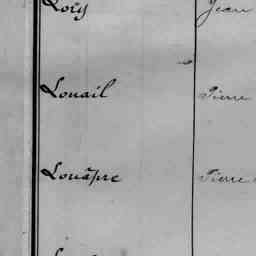 Loëy Jean
Louail Pierre
Louâpre Pierre